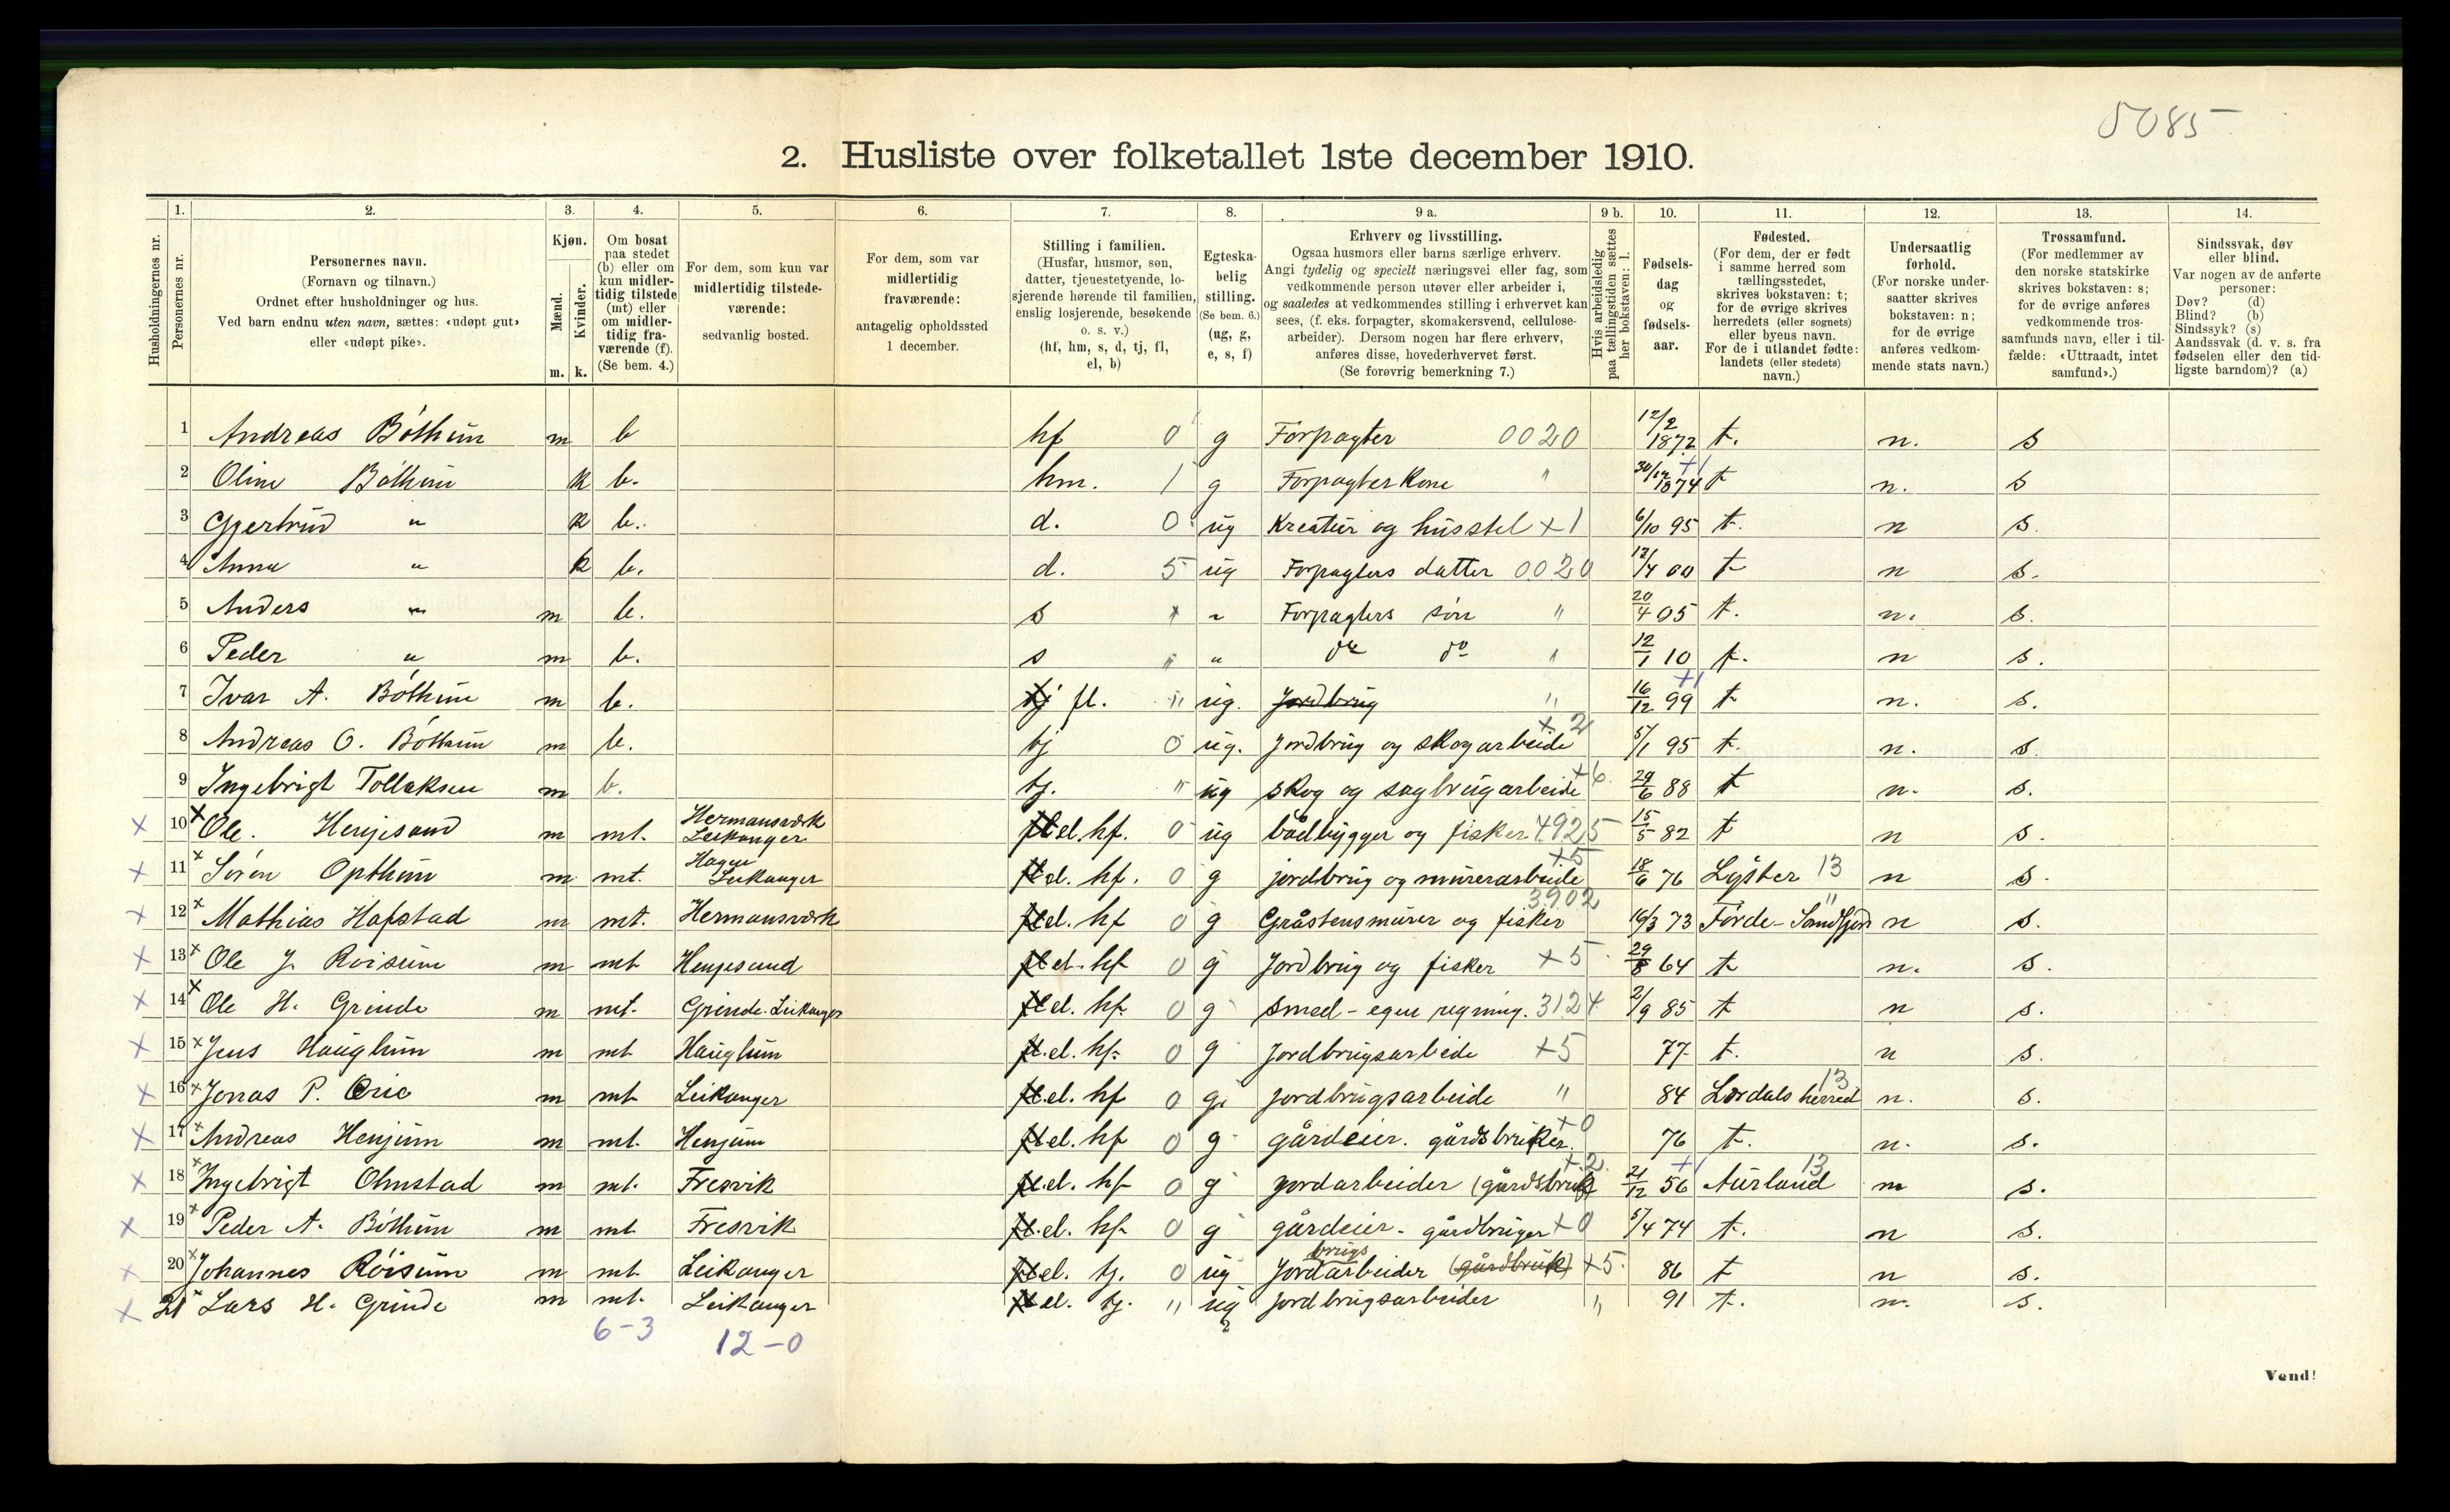 5085
2. Husliste over folketallet 1ste december 1910.
1. 2. 3. 4. 5. 6. 7. 8. 9 a. 9 b. 10. 11. 12. 13. 14.
Husholdningernes nr.
Personernes nr.
Personernes navn.
(Fornavn og tilnavn.)
Ordnet efter husholdninger og hus.
Ved barn endnu uten navn, sættes: «udøpt gut»
eller «udøpt pike».
Kjøn.
Mænd.
Kvinder.
m. k.
Om bosat
paa stedet
(b) eller om
kun midler-
tidig tilstede
(mt) eller
om midler-
tidig fra-
værende (f).
(Se bem. 4.)
For dem, som kun var
midlertidig tilstede-
værende:
sedvanlig bosted.
For dem, som var
midlertidig
fraværende:
antagelig opholdssted
1 december.
Stilling i familien.
(Husfar, husmor, søn,
datter, tjenestetyende, lo-
sjerende hørende til familien,
enslig losjerende, besøkende
o. s. v.)
(hf, hm, s, d, tj, fl,
el, b)
Egteska-
belig
stilling.
(Se bem. 6.)
(ug, g,
e, s, f)
Erhverv og livsstilling.
Ogsaa husmors eller barns særlige erhverv.
Angi tydelig og specielt næringsvei eller fag, som
vedkommende person utøver eller arbeider i,
og saaledes at vedkommendes stilling i erhvervet kan
sees, (f. eks. forpagter, skomakersvend, cellulose-
arbeider). Dersom nogen har flere erhverv,
anføres disse, hovederhvervet først.
(Se forøvrig bemerkning 7.)
Hvis arbeidsledig
paa tællingstiden sættes
her bokstaven: l.
Fødsels-
dag
og
fødsels-
aar.
Fødested.
(For dem, der er født
i samme herred som
tællingsstedet,
skrives bokstaven: t;
for de øvrige skrives
herredets (eller sognets)
eller byens navn.
For de i utlandet fødte:
landets (eller stedets)
navn.)
Undersaatlig
forhold.
(For norske under-
saatter skrives
bokstaven: n;
for de øvrige
anføres vedkom-
mende stats navn.)
Trossamfund.
(For medlemmer av
den norske statskirke
skrives bokstaven: s;
for de øvrige anføres
vedkommende tros-
samfunds navn, eller i til-
fælde: «Uttraadt, intet
samfund».)
Sindssvak, døv
eller blind.
Var nogen av de anførte
personer:
Døv? (d)
Blind? (b)
Sindssyk? (s)
Aandssvak (d. v. s. fra
fødselen eller den tid-
ligste barndom)? (a)
1 Andreas Bóthun m b hf 0 g Forpagter 0020 12/2 1872 t. n. s
2 Oline Bóthun k b. hm. 1 g Forpagterkone " 30/12 1874 +1 t n. s
3 Gjertrud " k b. d. 0 ug Kreatur og husstel +1 6/10 95 t. n s.
4 Anna " k b. d. 5 ug Forpagters datter 0020 12/4 00 t n s.
5 Anders " m b. s " Forpagters són " 20/4 05 t. n. s.
6 Peder " m b. s " " do do " 12/1 10 t. n s.
7 Ivar A. Bóthun m b. tj fl. " ug. Jordbrug " 16/12 99 +1 t n. s.
8 Andreas O. Bóthun m b. tj 0 ug. Jordbrug og skogarbeide +2 5/1 95 t. n. s.
9 Ingebrigt Tollaksen m b. tj. " ug skog og sagbrugarbeide +6 29/6 88 t n. s.
x 10 x Ole. Henjesand m mt. Hermansværk Leikanger fl el. hf. 0 ug bådbygger og fisker 4925 15/5 82 t n s.
x 11 x Sóren Opthun m mt. Hagen Leikanger fl el. hf. 0 g jordbrug og murerarbeide +5 18/6 76 Lyster 13 n s.
x 12 x Mathias Hafstad m mt. Hermansværk fl el. hf 0 g Gråstensmurer og fisker 3902 16/3 73 Förde-Sandfjord " n s.
x 13 x Ole J. Röisum m mt Henjesand fl el. hf 0 g Jordbrug og fisker +5 29/8 64 t n. s.
x 14 x Ole H. Grinde m mt. Grinde. Leikanger fl el. hf 0 g smed - egen regning. 3124 2/9 85 t n s.
x 15 x Jens Hauglum m mt Hauglum fl. el. hf. 0 g Jordbrugsarbeide +5 77 t. n s.
x 16 x Jonas P. m mt Leikanger fl. el. hf 0 g. jordbrugsarbeide " 84 Lærdals herred 13 n. s.
x 17 x Andreas Henjum m mt. Henjum fl el. hf 0 g gårdeier. gårdsbruker. +0 76 t. n. s.
x 18 x Ingebrigt Ohnstad m mt. Fresvik fl el. hf 0 g jordarbeider (gårdsbruk +2 21/12 56 +1 Aurland 13 n s.
x 19 x Peder A. Bóthun m mt Fresvik fl. el. hf 0 g gårdeier - gårdbruger +0 5/4 74 t. n s.
x 20 x Johannes Róisum m mt Leikanger fl el. tj. 0 ug Jordbrugsarbeider (gårdbruk) +5 86 t n s.
x 21 x Lars H. Grinde m mt. Leikanger fl el. tj. " ug Jordbrugsarbeider " 91 t. n. s.
6-3 12-0 2
Vend!